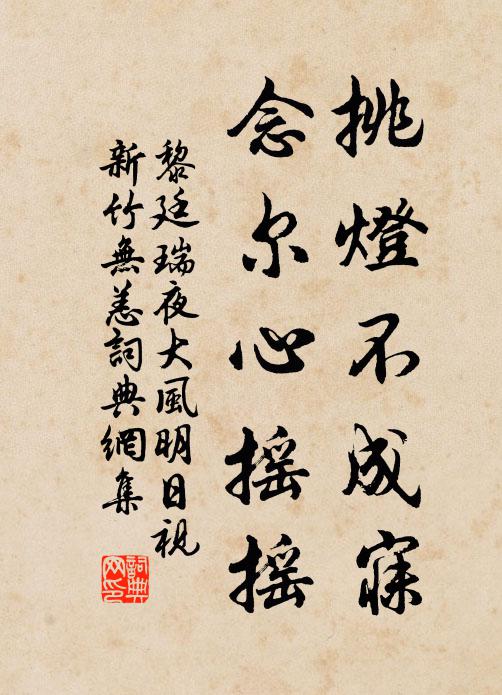 挑燈不成寐
念尔心摇摇
黎廷瑞夜大風明日視
新竹無恙詞典網集
詞典
网印